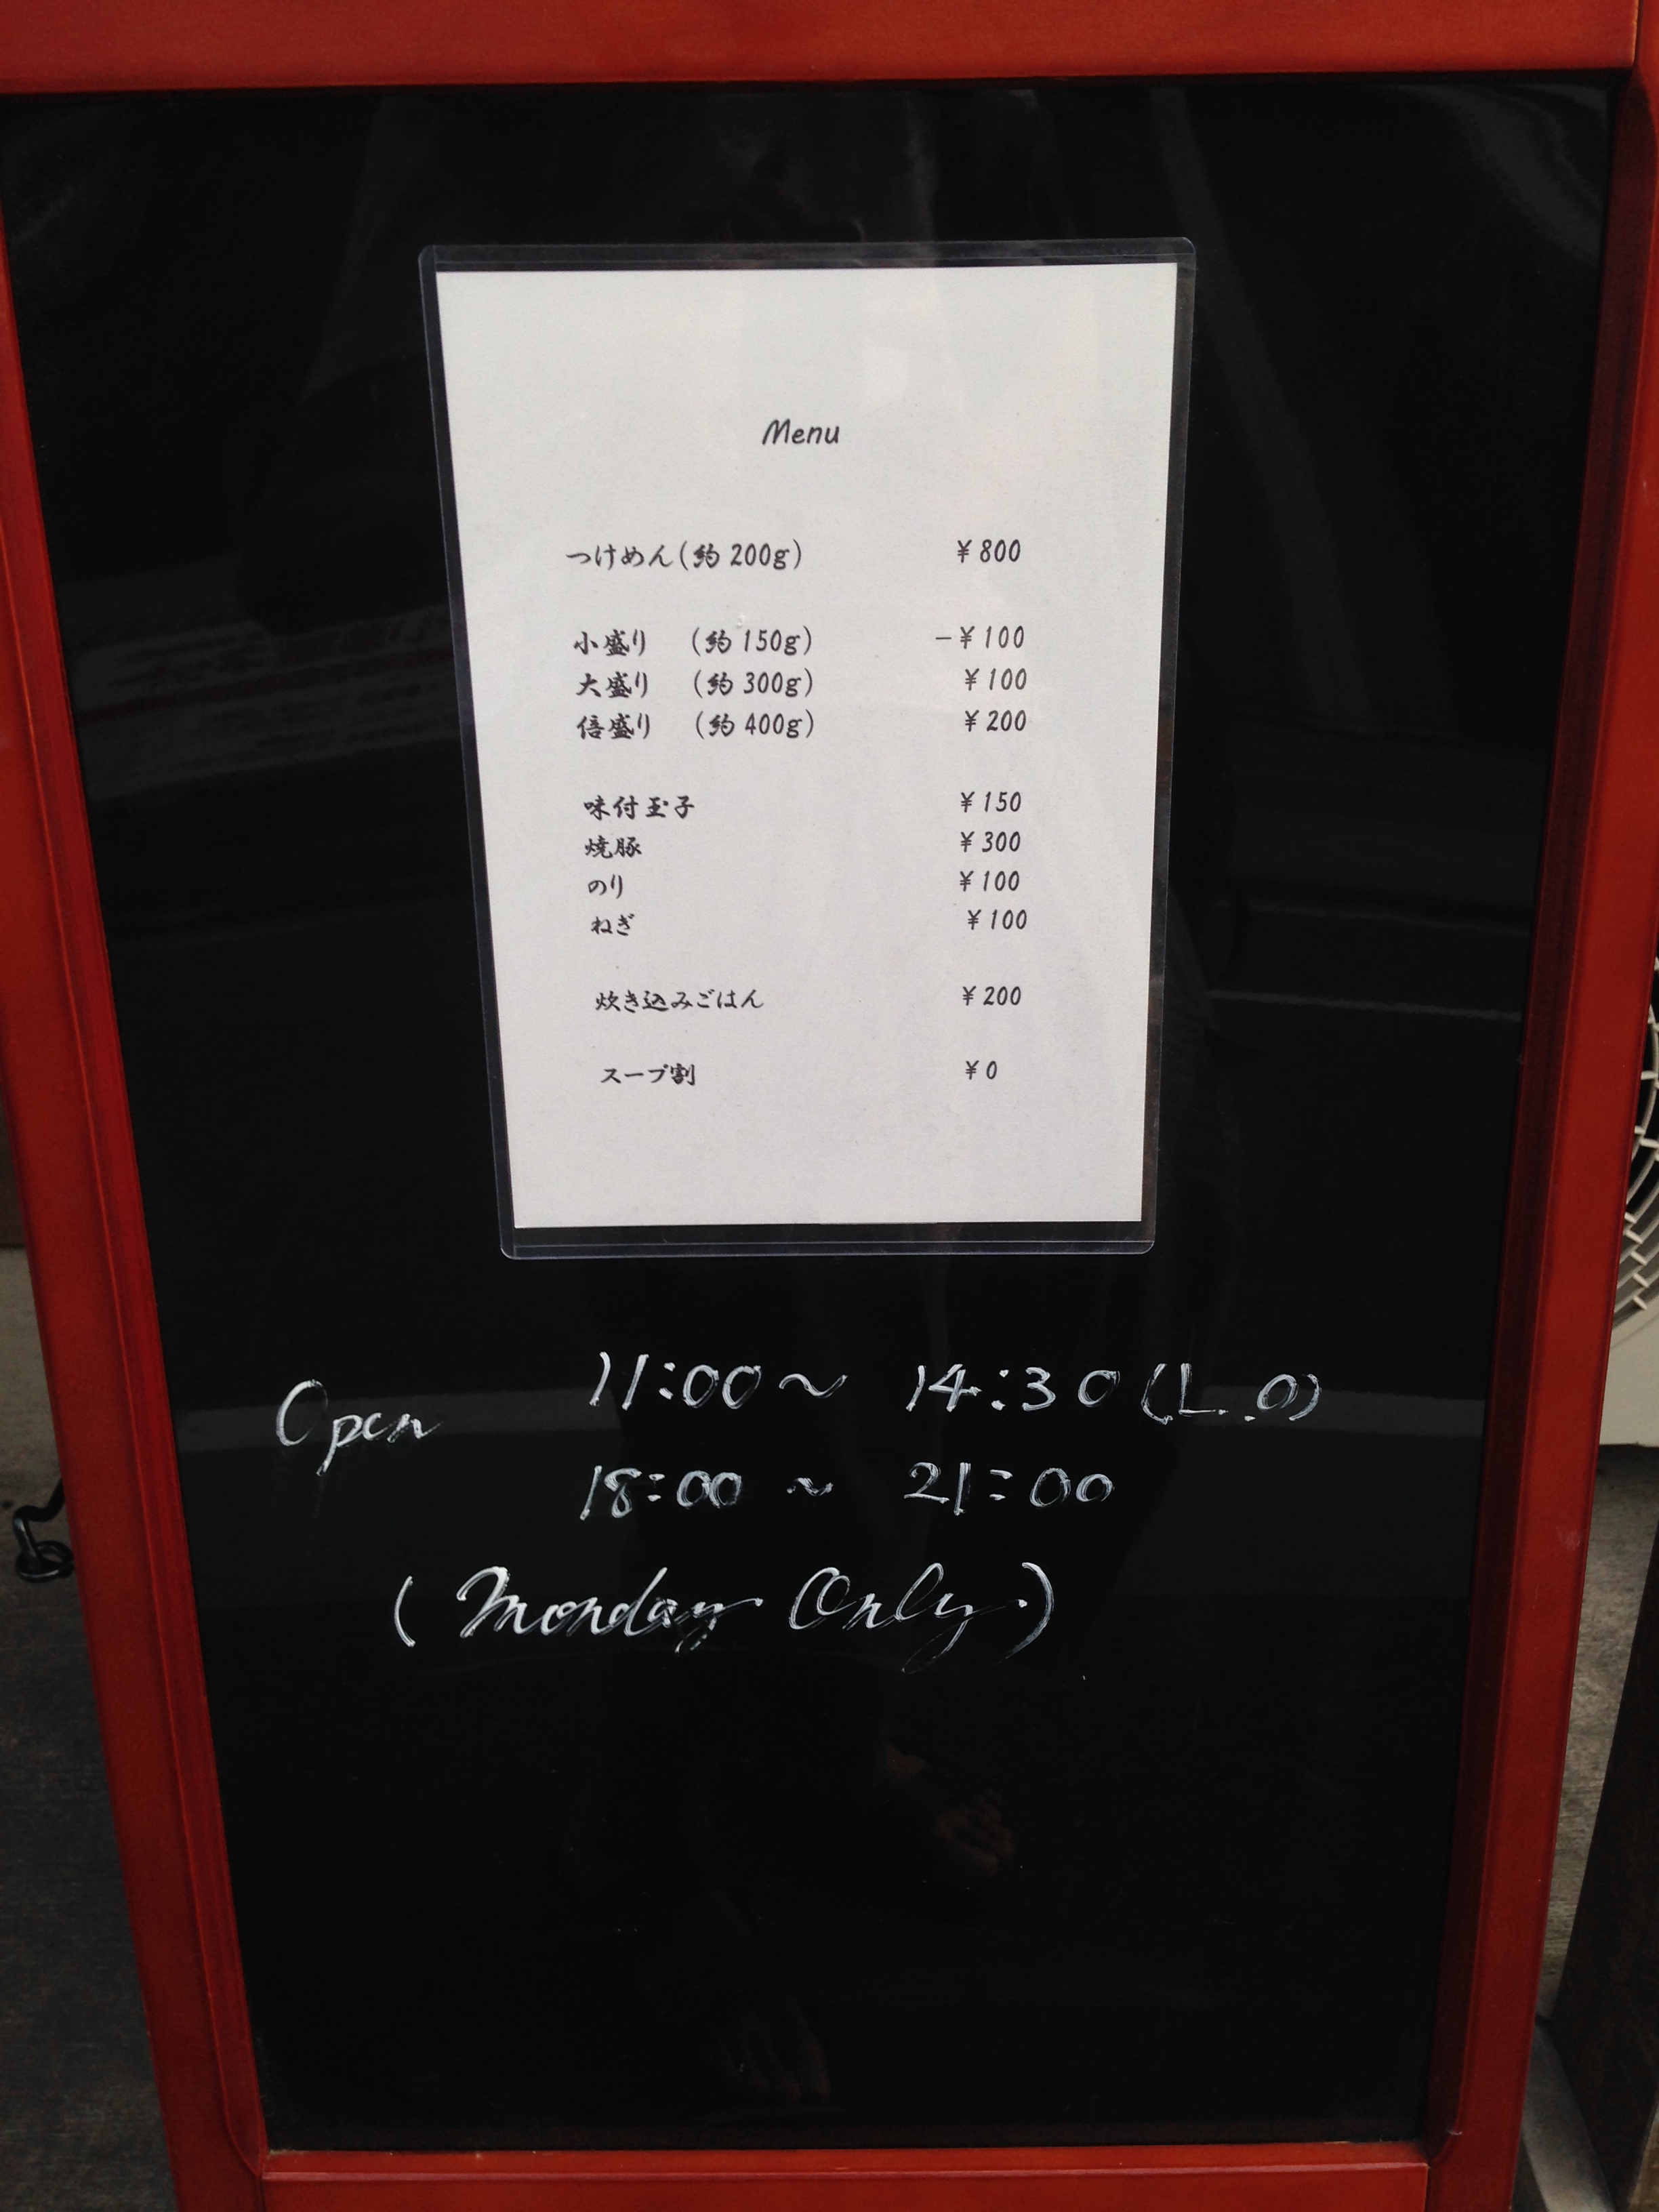 Menu
つけめん(約200g) ¥800
小盛り (約150g) −¥100
大盛り (約300g) ¥100
倍盛り (約400g) ¥200
味付玉子 ¥150
焼豚 ¥300
のり ¥100
ねぎ ¥100
炊き込みごはん ¥200
スープ割 ¥0
Open 11:00～14:30(L.O)
18:00～21:00
(Monday Only.)